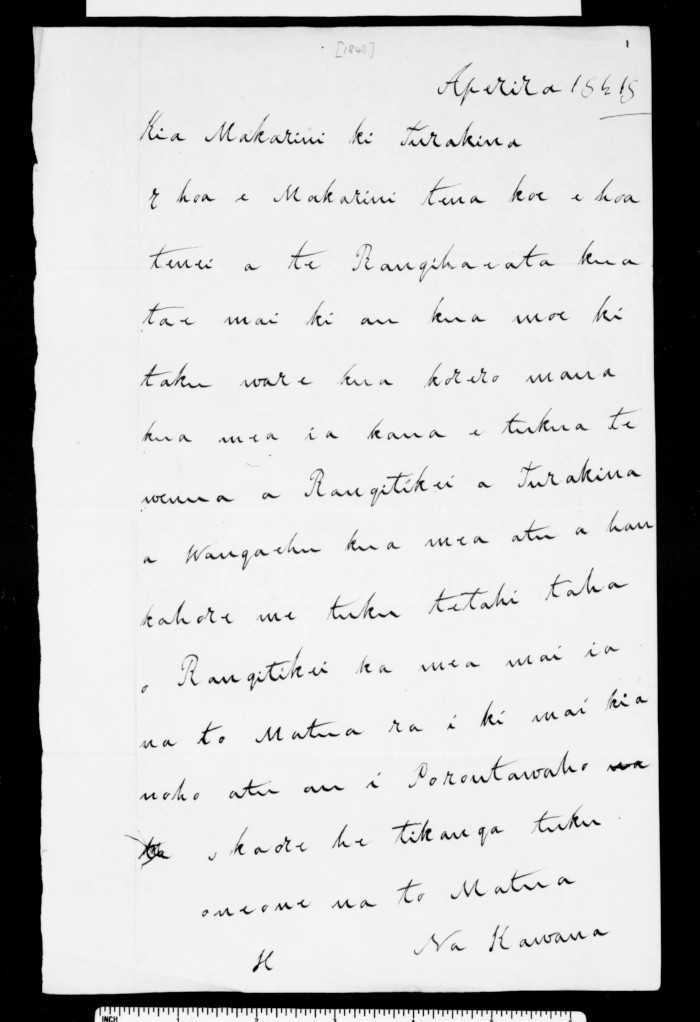 [1848]
1
Aperira 1848
Kia Makarini ki Turakina
E hoa e Makarini tena koe e hoa
tenei a te Rangihaeata kua
tae mai ki au kua moe ki
taku ware kua korero mana
kua mea ia kaua e tukua te
wenua a Rangitikei a Turakina
a Wangaehu kua mea atu a hau
kahore me tuku tetahi taha
o Rangitikei ka mea mai ia
na to Matua ra i ki mai kia
noho atu au i Poroutawaho
kaore he tikanga tuku
oneone na to Matua
Na Kawana
H
INCH 1 2 3 4 5 6